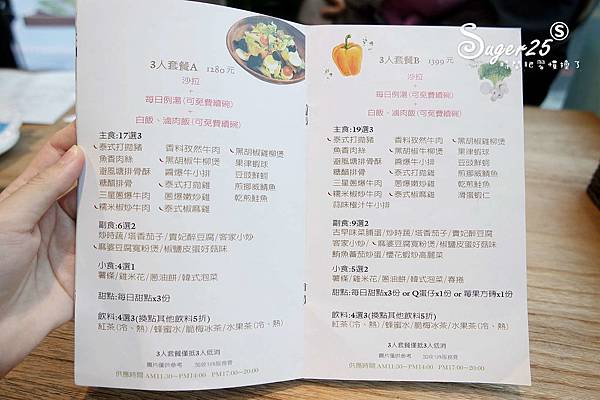 Suger25
3人套餐A 1280元
沙拉
+
每日例湯(可免費續碗)
+
白飯、滷肉飯(可免費續碗)
主食:17選3
泰式打拋豬 香料孜然牛肉 黑胡椒雞柳煲
魚香肉絲 黑胡椒牛柳煲 果律蝦球
避風塘排骨酥 醬爆牛小排 豆豉鮮蚵
糖醋排骨 泰式打拋雞 煎挪威鯖魚
三星蔥爆牛肉 蔥爆嫩雞 乾煎鮭魚
糯米椒炒牛肉 泰式椒麻雞
副食:6選2
炒時蔬/塔香茄子/貴妃醉豆腐/客家小炒
麻婆豆腐寬粉煲/椒鹽皮蛋好菇味
小食:4選1
薯條/雞米花/蔥油餅/韓式泡菜
甜點:每日甜點x3份
飲料:4選3(換點其他飲料5折)
紅茶(冷、熱)/蜂蜜水/脆梅冰茶/水果茶(冷、熱)
3人套餐僅抵3人低消
圖片僅供參考 加收10%服務費
供應時間 AM11:30~PM14:00 PM17:00~20:00
3人套餐B 1399元
沙拉
+
每日例湯(可免費續碗)
+
白飯、滷肉飯(可免費續碗)
主食:19選3
泰式打拋豬 香料孜然牛肉 黑胡椒雞柳煲
魚香肉絲 黑胡椒牛柳煲 果律蝦球
避風塘排骨酥 醬爆牛小排 豆豉鮮蚵
糖醋排骨 泰式打拋雞 煎挪威鯖魚
三星蔥爆牛肉 蔥爆嫩雞 乾煎鮭魚
糯米椒炒牛肉 泰式椒麻雞 滑蛋蝦仁
蒜味橙汁牛小排
副食:9選2
古早味菜脯蛋/炒時蔬/塔香茄子/貴妃醉豆腐
客家小炒/麻婆豆腐寬粉煲/椒鹽皮蛋好菇味
鮪魚蕃茄炒蛋/櫻花蝦炒高麗菜
小食:5選2
薯條/雞米花/蔥油餅/韓式泡菜/春捲
甜點:每日甜點x3份 or Q蛋仔x1份 or 莓果方磚x1份
飲料:4選3(換點其他飲料5折)
紅茶(冷、熱)/蜂蜜水/脆梅冰茶/水果茶(冷、熱)
3人套餐僅抵3人低消
圖片僅供參考 加收10%服務費
供應時間 AM11:30~PM14:00 PM17:00~20:00